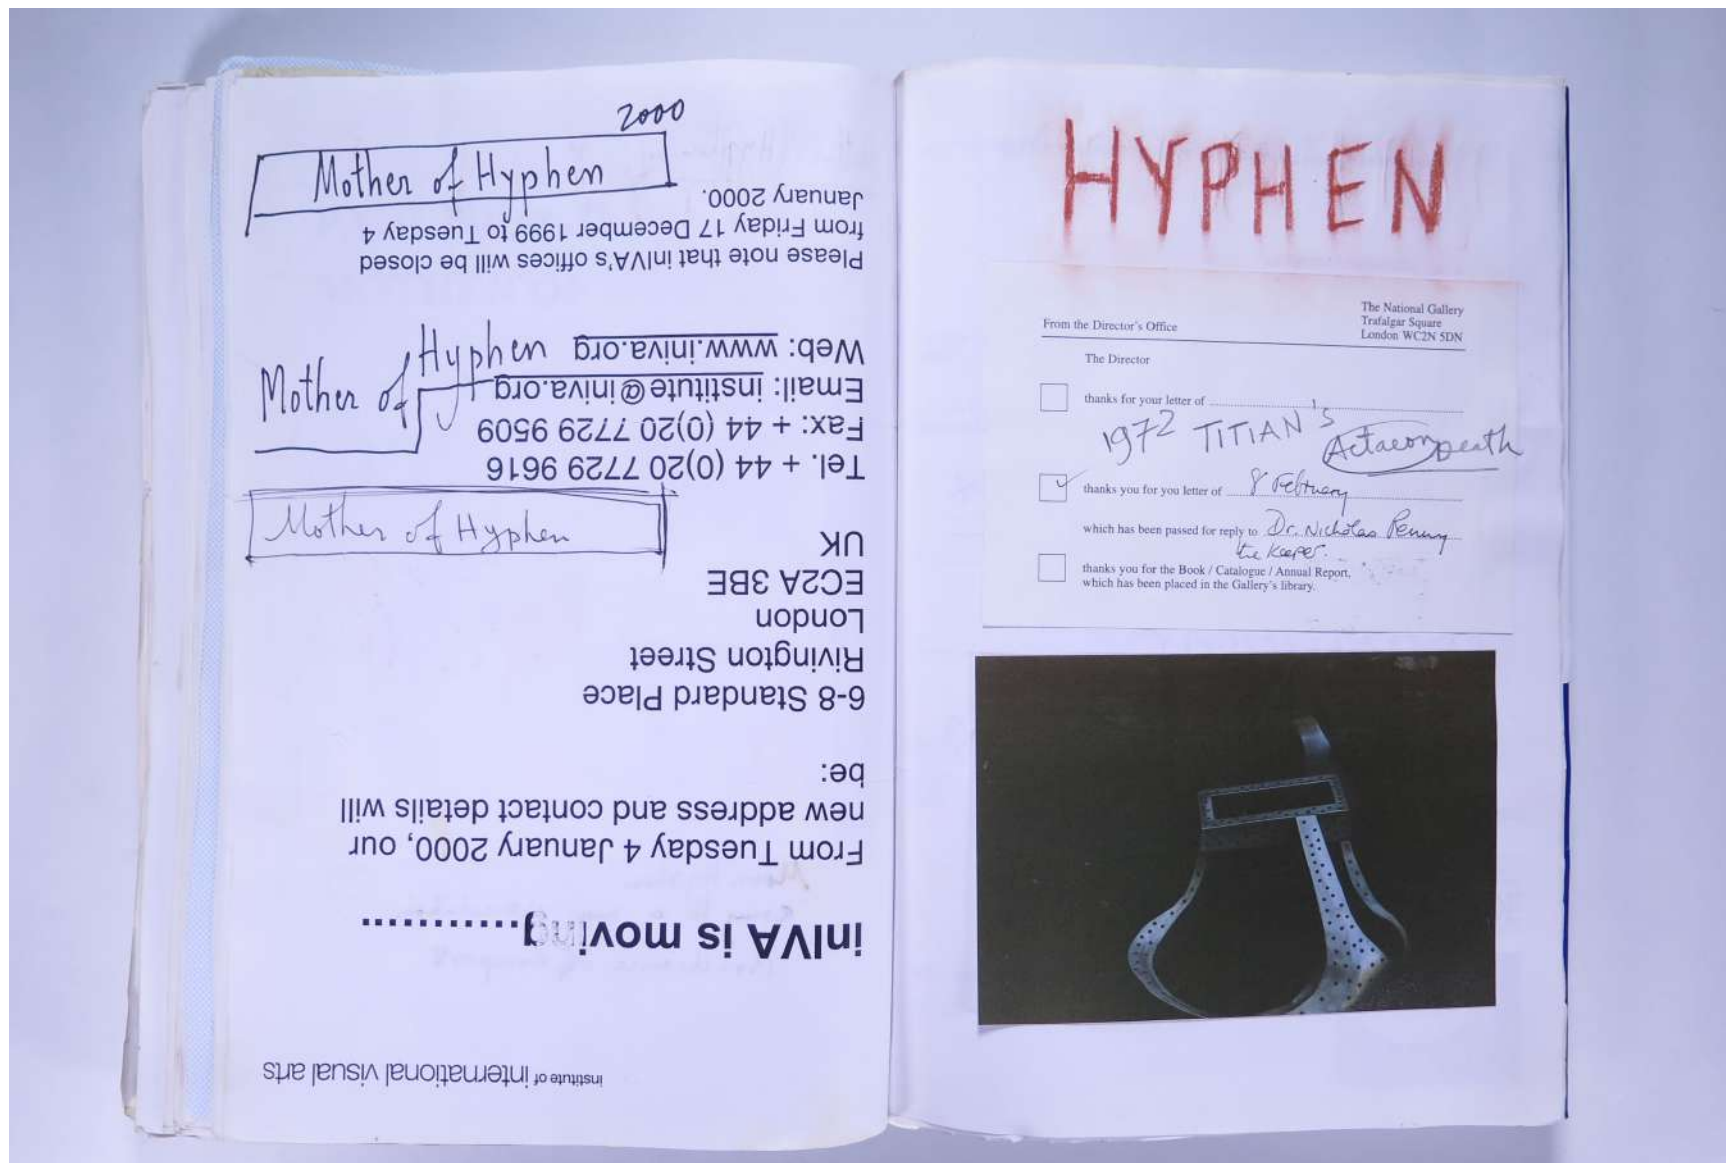 2000
Mother of Hyphen
Mother of Hyphen
Mother of Hyphen
institute of international visual arts
inIVA is moving...........
From Tuesday 4 January 2000, our
new address and contact details will
be:
6-8 Standard Place
Rivington Street
London
EC2A 3BE
UK
Tel. + 44 (0)20 7729 9616
Fax: + 44 (0)20 7729 9509
Email: institute@iniva.org
Web: www.iniva.org
Please note that inIVA's offices will be closed
from Friday 17 December 1999 to Tuesday 4
January 2000.
HYPHEN
The National Gallery
Trafalgar Square
London WC2N 5DN
From the Director's Office
The Director
thanks for your letter of
1972 TITIAN'S Actaeon Death
thanks you for you letter of 8 February
which has been passed for reply to Dr. Nicholas Penny
the Keeper.
thanks you for the Book / Catalogue / Annual Report,
which has been placed in the Gallery's library.